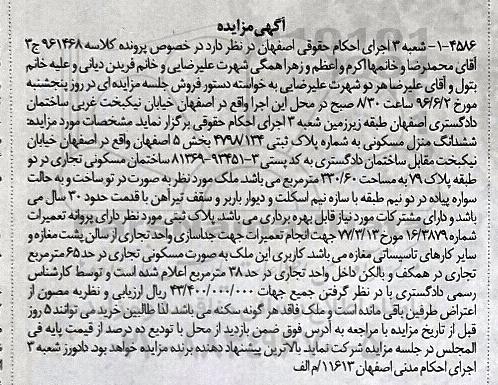 آگهی مزایده
۱-۴۵۸۶- شعبه ۳ اجرای احکام حقوقی اصفهان در نظر دارد در خصوص پرونده کلاسه ۹۶۱۴۶۸ ج۳
آقای محمدرضا و خانمها اکرم و اعظم و زهرا همگی شهرت علیرضایی و خانم فریدن دیانی و علیه خانم
بتول و آقای علیرضا هر دو شهرت علیرضایی به خواسته دستور فروش جلسه مزایده ای در روز پنجشنبه
مورخ ۹۶/۶/۲ ساعت ۸/۳۰ صبح در محل این اجرا واقع در اصفهان خیابان نیکبخت غربی ساختمان
دادگستری اصفهان طبقه زیرزمین شعبه ۳ اجرای احکام حقوقی برگزار نماید مشخصات مورد مزایده:
ششدانگ منزل مسکونی به شماره پلاک ثبتی ۴۷۹۸/۱۳۴ بخش ۵ اصفهان واقع در اصفهان خیابان
نیکبخت مقابل ساختمان دادگستری به کد پستی ۳-۹۳۴۵۱-۸۱۳۶۹ ساختمان مسکونی تجاری در دو
طبقه پلاک ۷۹ به مساحت ۳۳۰/۶۰ مترمربع می باشد. ملک مورد نظر به صورت در تو ساخت و به حالت
سواره پیاده در دو نیم طبقه با سازه نیم اسکلت و دیوار باربر و سقف تیرآهن با قدمت حدود ۳۰ سال می
باشد و دارای مشترکات مورد نیاز قابل بهره برداری می باشد. پلاک ثبتی مورد نظر دارای پروانه تعمیرات
شماره ۱۶/۳۸۷۹ مورخ ۷۷/۳/۱۳ جهت انجام تعمیرات جهت جداسازی واحد تجاری از سالن پشت مغازه و
سایر کارهای تاسیساتی مغازه می باشد. کاربری این ملک به صورت مسکونی تجاری در حد ۶۵ مترمربع
تجاری در همکف و بالکن داخل واحد تجاری در حد ۳۸ مترمربع اعلام شده است و توسط کارشناس
رسمی دادگستری با در نظر گرفتن جمیع جهات ۴۳/۴۰۰/۰۰۰/۰۰۰ ریال ارزیابی و نظریه مصون از
اعتراض طرفین باقی مانده است و ملک فاقد هر گونه سکنه می باشد. لذا طالبین خرید می توانند ۵ روز
قبل از تاریخ مزایده با مراجعه به آدرس فوق ضمن بازدید از محل با تودیع ده درصد از قیمت پایه فی
المجلس در جلسه مزایده شرکت نماید. بالاترین پیشنهاد دهنده برنده مزایده خواهد بود. دادورز شعبه ۳
اجرای احکام مدنی اصفهان ۱۱۶۱۳/م الف